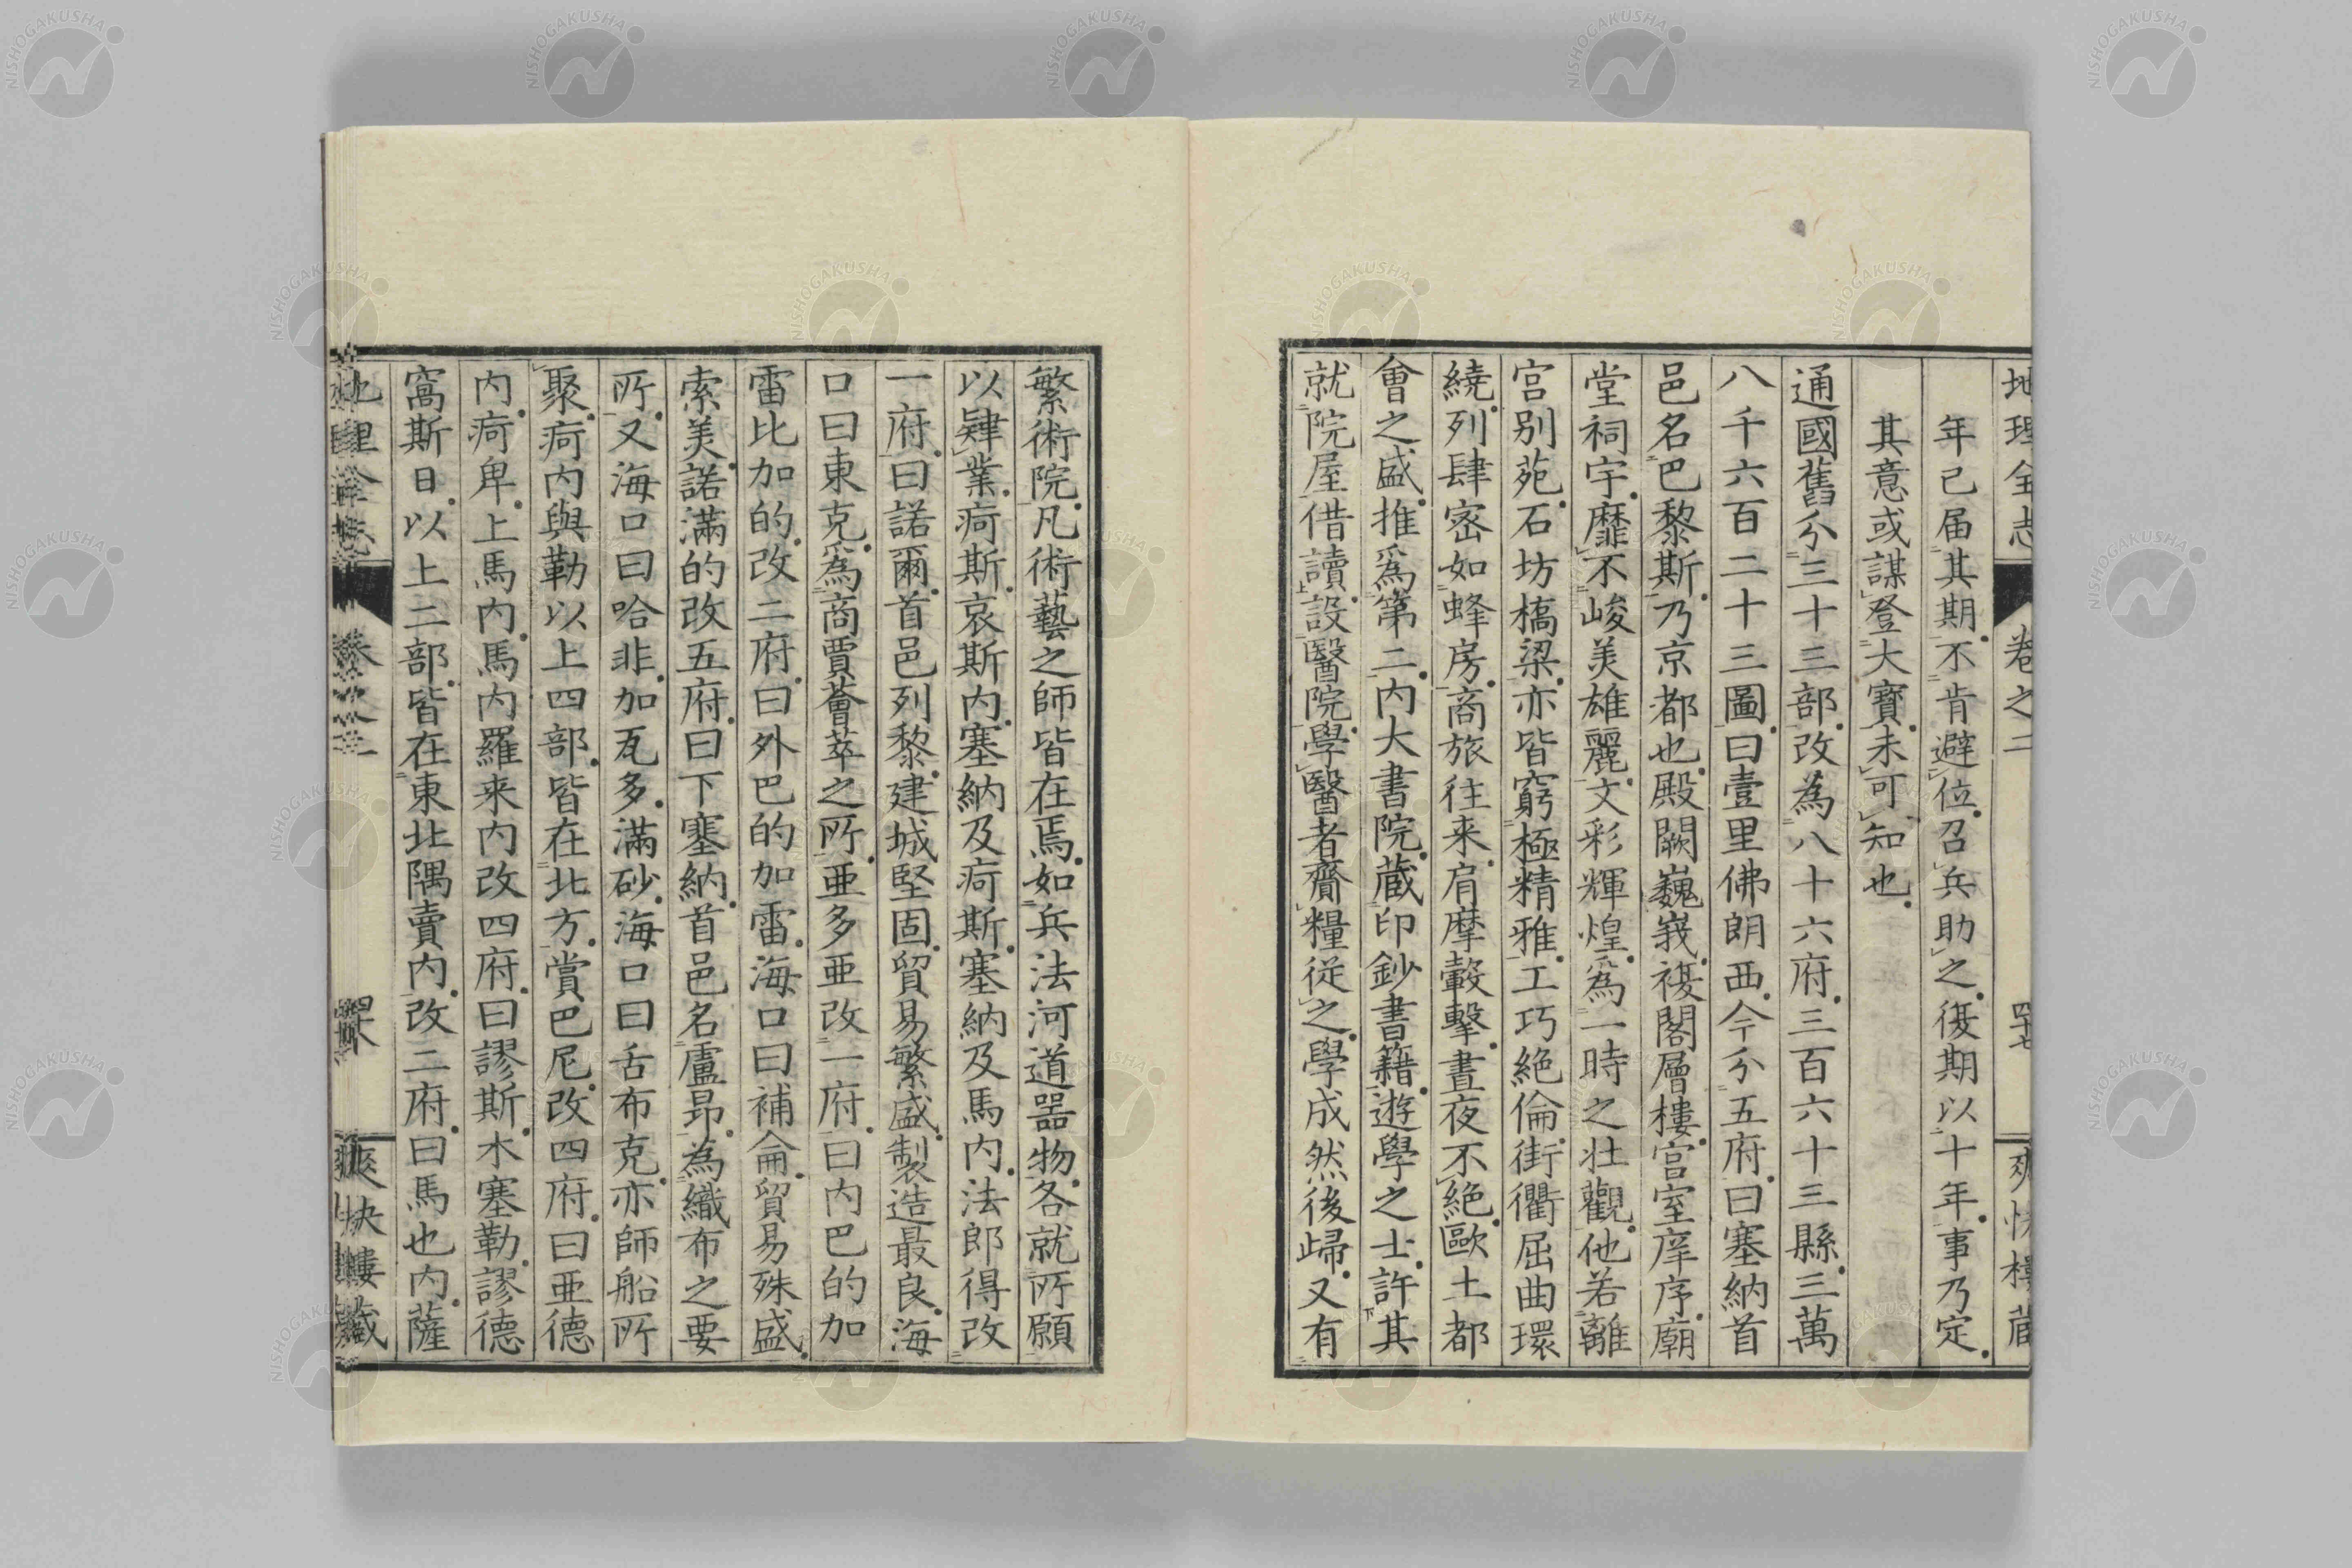 地理全志 卷之二 爽快樓藏
年已届其期不肯避位召兵助之復期以十年事乃定
其意或謀登大寶未可知也
通國舊分三十三部改為八十六府三百六十三縣三萬
八千六百二十三圖曰壹里佛朗西今分五府曰塞納首
邑名巴黎斯乃京都也殿闕巍峩複閣層樓宮室庠序廟
堂祠宇靡不峻美雄麗文彩輝煌爲一時之壯觀他若離
宮别苑石坊橋梁亦皆窮極精雅工巧絶倫街衢屈曲環
繞列肆密如蜂房商旅往来肩摩轂擊晝夜不絶歐土都
會之盛推爲第二内大書院藏印鈔書籍遊學之士許其
就院屋借讀設醫院學醫者齎糧從之學成然後歸又有
繁術院凡術藝之師皆在焉如兵法河道噐物各就所願
以肄業疴斯哀斯内塞納及疴斯塞納及馬内法郎得改
一府曰諾爾首邑列黎建城堅固貿易繁盛製造最良海
口曰東克爲商賈薈萃之所亜多亜改一府曰内巴的加
雷比加的改二府曰外巴的加雷海口曰補侖貿易殊盛
索美諾滿的改五府曰下塞納首邑名盧昂為織布之要
所又海口曰哈非加瓦多滿砂海口曰舌布克亦師船所
聚疴内與勒以上四部皆在北方賞巴尼改四府曰亜德
内疴卑上馬内馬内羅来内改四府曰謬斯木塞勒謬德
窩斯日以上二部皆在東北隅賣内改二府曰馬也内薩
爽快樓藏